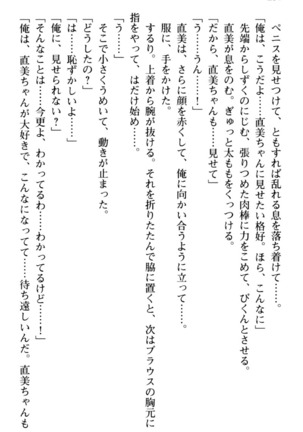 ペニスを見せつけて、ともすれば乱れる息を落ち着けて
「俺は、こうだよ……直美ちゃんに見せたい格好。ほら、こんなに」
先端からしずくのにじむ、張りつめた肉棒に力をこめて、びくんとさせる。
直美が息をのむ。ぎゅっと太ももをくっつける。
「だから、直美ちゃんも……見せて」
「う……うん……！」
直美は、さらに顔を赤くして、俺に向かい合うように立って。
服に、手をかけた。
するり、上着から腕が抜ける。それを折りたたんで脇に置くと、次はブラウスの胸元に
指をやって、はだけ始め……。
「う……」
そこで小さくうめいて、動きが止まった。
「どうしたの？」
「は……恥ずかしいよ……」
「俺に、見せられない？」
「そんなことは……今更よ、わかってるわ……わかってるけど……！」
「俺は、直美ちゃんが大好きで、こんなになってて……待ち遠しいんだ。直美ちゃんも